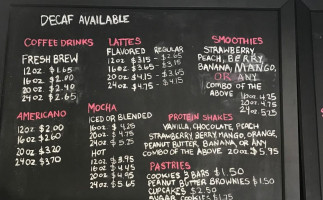 DECAF AVAILABLE
COFFEE DRINKS
FRESH BREW
12oz. $1.65
16oz. $2.10
20oz. $2.40
24oz. $2.65
LATTES
FLAVORED REGULAR
12oz. $3.15 - $2.65
16oz. $3.75 - $3.15
20oz. $4.15 - $3.65
24oz. $4.75 - $4.15
SMOOTHIES
STRAWBERRY
PEACH, BERRY,
BANANA, MANGO,
OR ANY
COMBO OF THE
ABOVE
16oz 4.25
20oz. 4.75
24oz. 5.75
AMERICANO
12oz $2.00
16oz $2.60
20oz $3.20
24oz $3.70
MOCHA
ICED OR BLENDED
16oz. $4.25
20oz. $4.75
24oz $5.75
HOT
12oz $3.95
16oz $4.45
20oz $4.95
24oz $5.65
PROTEIN SHAKES
VANILLA, CHOCOLATE, PEACH
STRAWBERRY, BERRY, MANGO, ORANGE,
PEANUT BUTTER, BANANA, OR ANY
COMBO OF THE ABOVE 20oz $5.95
PASTRIES
COOKIES & BARS $1.50
PEANUT BUTTER BROWNIES $1.50
CUPCAKES $2.50
SUGAR COOKIES $1.75